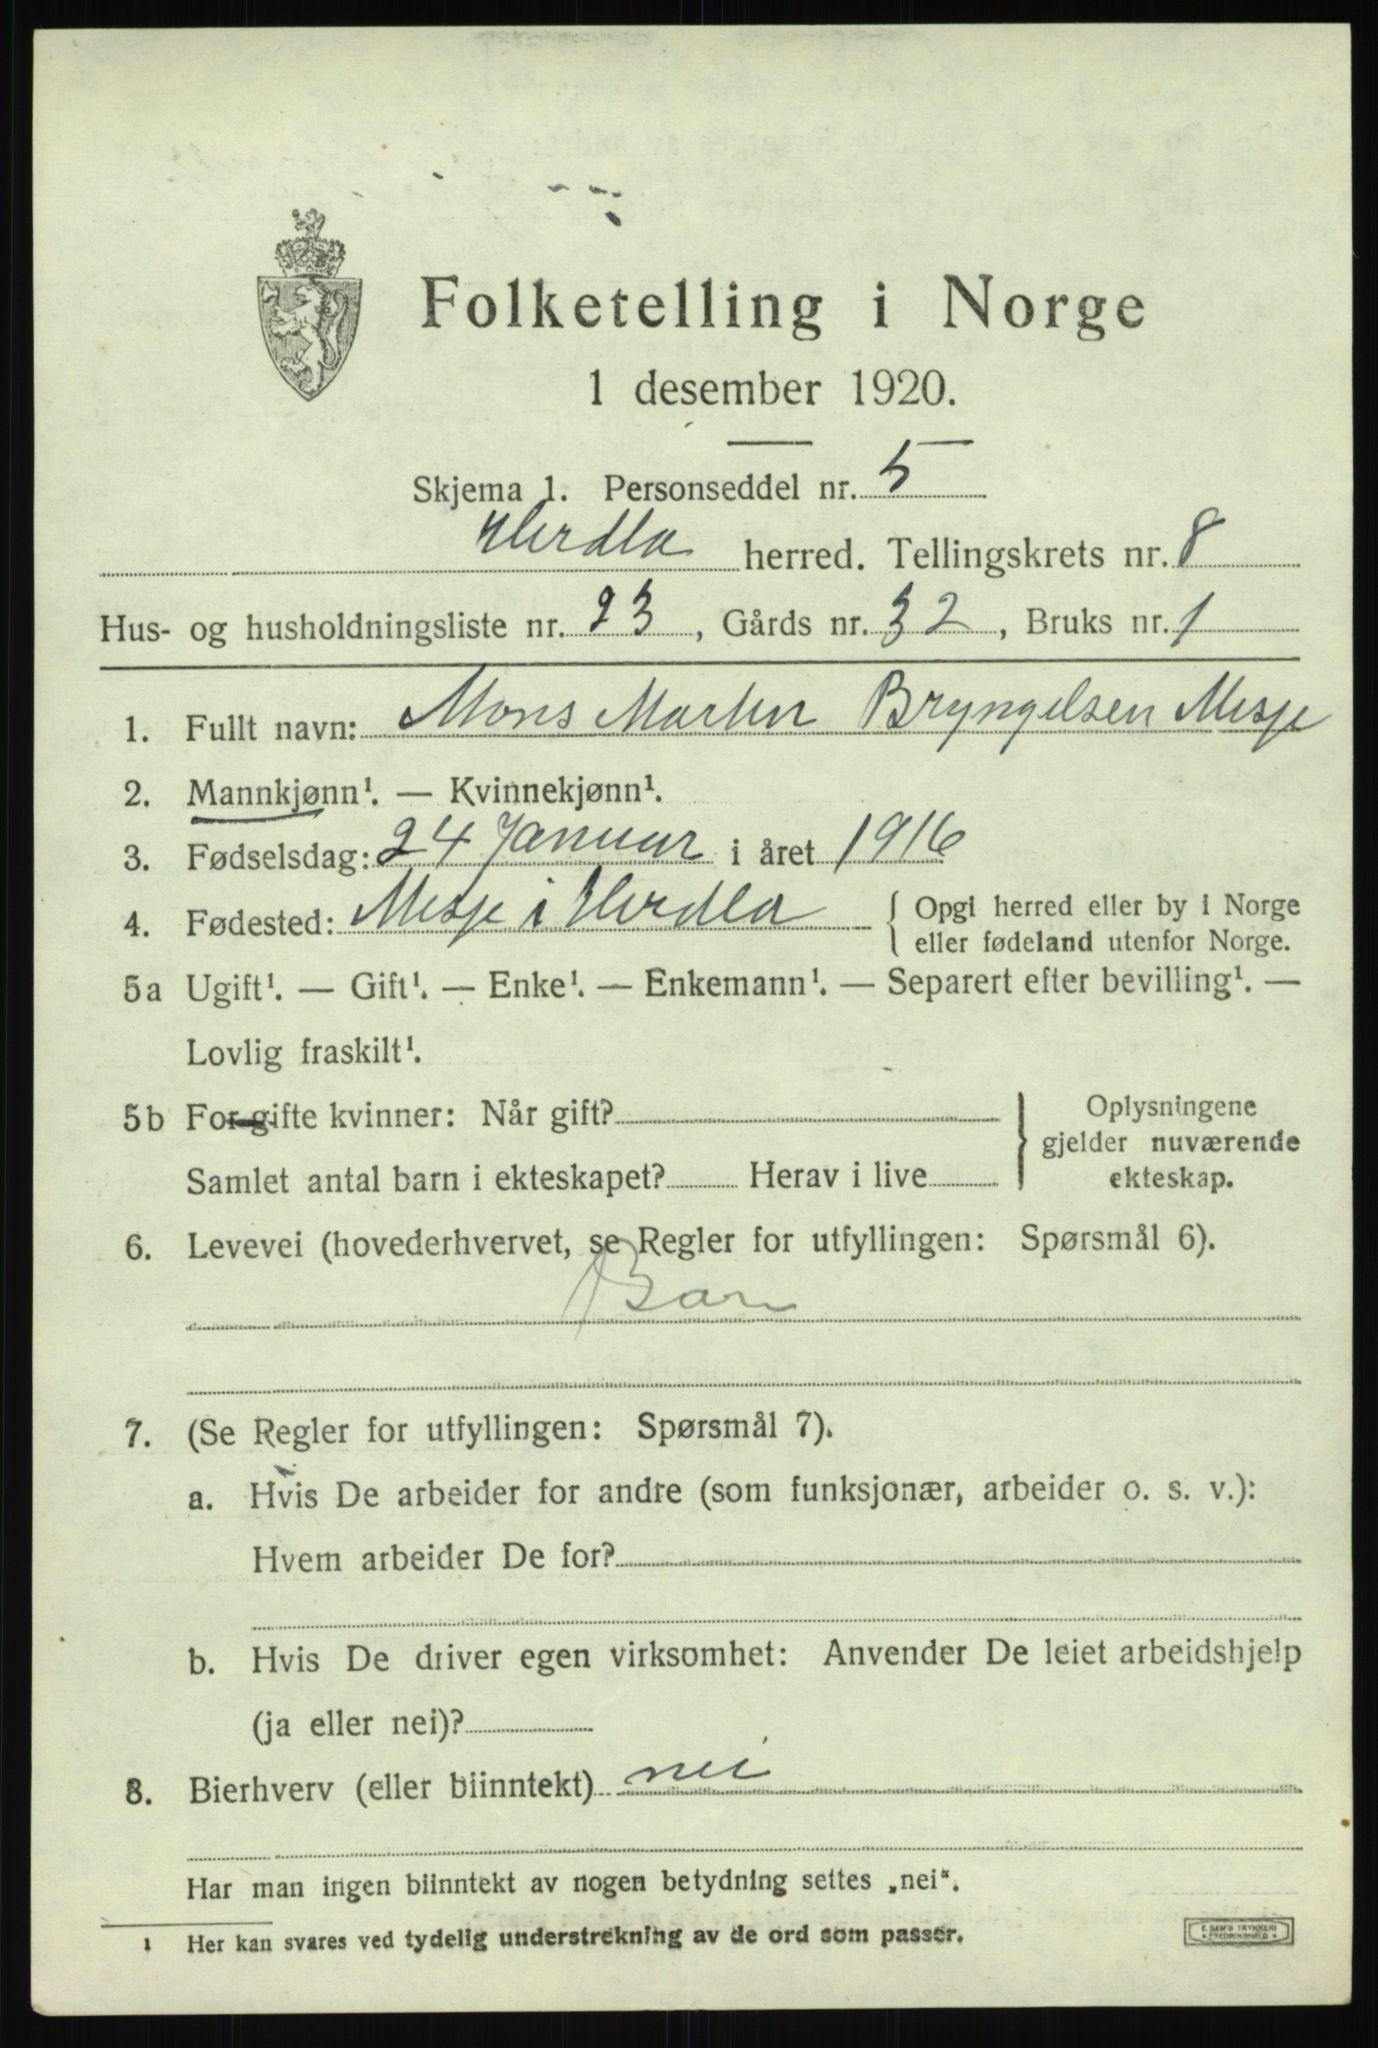 Folketelling i Norge
1 desember 1920.
Skjema 1. Personseddel nr. 5
Herdla herred. Tellingskrets nr. 8
Hus- og husholdningsliste nr. 23, Gårds nr. 32, Bruks nr. 1
1. Fullt navn: Mons Martin Bryngelsen Misje
2. Mannkjønn¹. — Kvinnekjønn¹.
3. Fødselsdag: 24 Januar i året 1916
4. Fødested: Misje i Herdla { Opgi herred eller by i Norge
eller fødeland utenfor Norge.
5a Ugift¹. — Gift¹. — Enke¹. — Enkemann¹. — Separert efter bevilling¹. —
Lovlig fraskilt¹.
5b For gifte kvinner: Når gift? } Oplysningene
gjelder nuværende
Samlet antal barn i ekteskapet? Herav i live ekteskap.
6. Levevei (hovederhvervet, se Regler for utfyllingen: Spørsmål 6).
Barn
7. (Se Regler for utfyllingen: Spørsmål 7).
a. Hvis De arbeider for andre (som funksjonær, arbeider o. s. v.):
Hvem arbeider De for?
b. Hvis De driver egen virksomhet: Anvender De leiet arbeidshjelp
(ja eller nei)?
8. Bierhverv (eller biinntekt) nei
Har man ingen biinntekt av nogen betydning settes „nei“.
1 Her kan svares ved tydelig understrekning av de ord som passer.
E. SEM'S TRYKKERI
FREDRIKSHALD